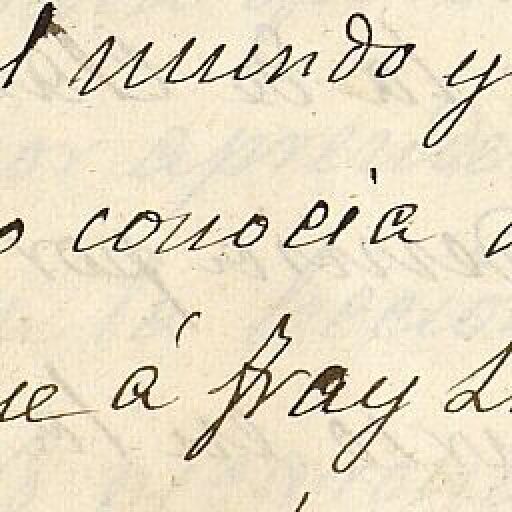 l mundo y
o conocía
ue á fray